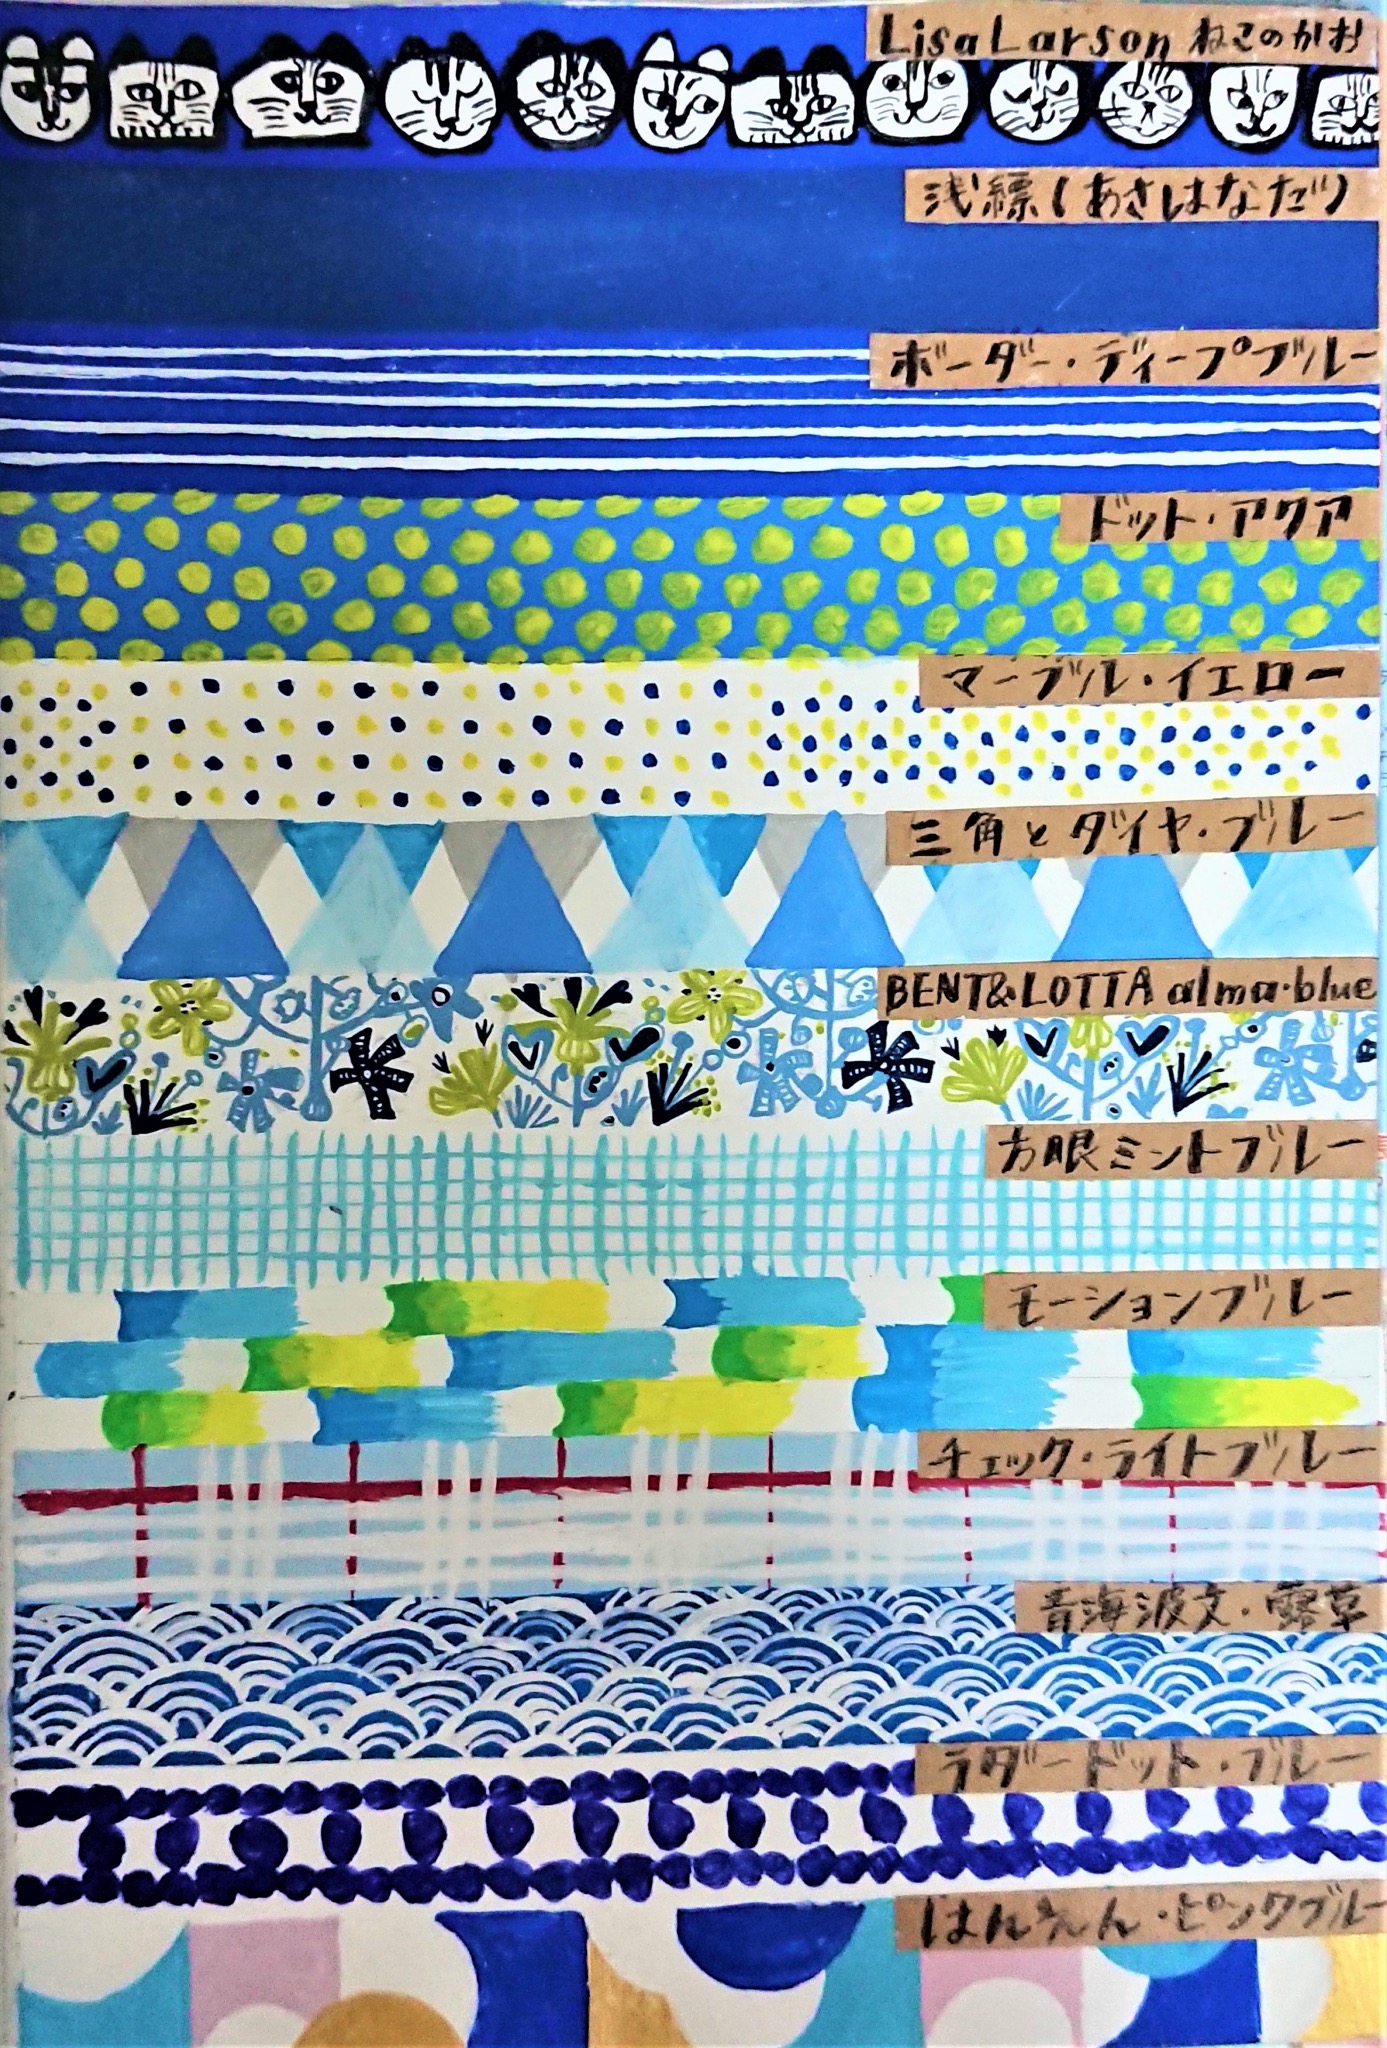 Lisa Larson ねこのかお
浅縹(あさはなだ)
ボーダー・ディープブルー
ドット・アクア
マーブル・イエロー
三角とダイヤ・ブルー
BENT&LOTTA alma・blue
方眼ミントブルー
モーションブルー
チェック・ライトブルー
青海波文・露草
ラダードット・ブルー
はんえん・ピンクブルー